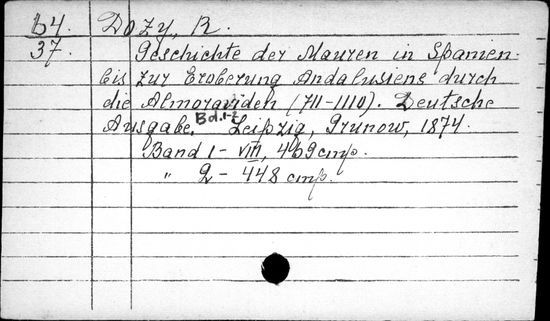 64. Dozy, R.
37. Geschichte der Mauren in Spanien
bis zur Eroberung Andalusiens durch
die Almoraviden (711-1110). Deutsche
Ausgabe. Bd. 1-2 Leipzig, Grunow, 1874.
Band 1 - VIII, 469 стр.
" 2 - 448 стр.